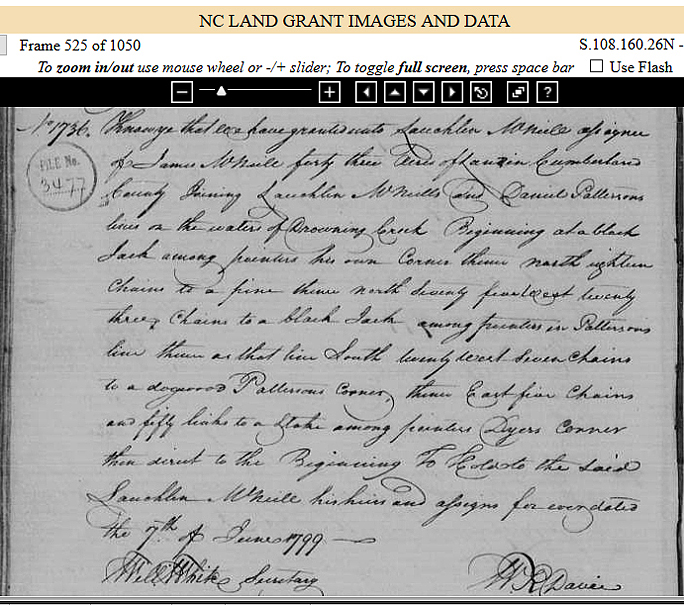 NC LAND GRANT IMAGES AND DATA
Frame 525 of 1050
S.108.160.26N -
To zoom in/out use mouse wheel or -/+ slider; To toggle full screen, press space bar
Use Flash
No 1736. Know ye that we have granted unto Lauchlin McNeill assignee
of James McNeill forty three Acres of Land in Cumberland
FILE No.
3477
County Joining Lauchlin McNeills and Daniel Pattersons
lines on the waters of Drowning Creek Beginning at a black
Jack among pointers his own Corner thence north eighteen
Chains to a pine thence north Seventy five West twenty
three Chains to a black Jack among pointers in Pattersons
line thence as that line South twenty West Seven Chains
to a dogwood Pattersons Corner, thence East five Chains
and fifty links to a Stake among pointers Dyers Corner
then direct to the Beginning To Hold to the said
Lauchlin McNeill his heirs and assigns for ever dated
the 7th of June 1799
Will White Secretary
W R Davie